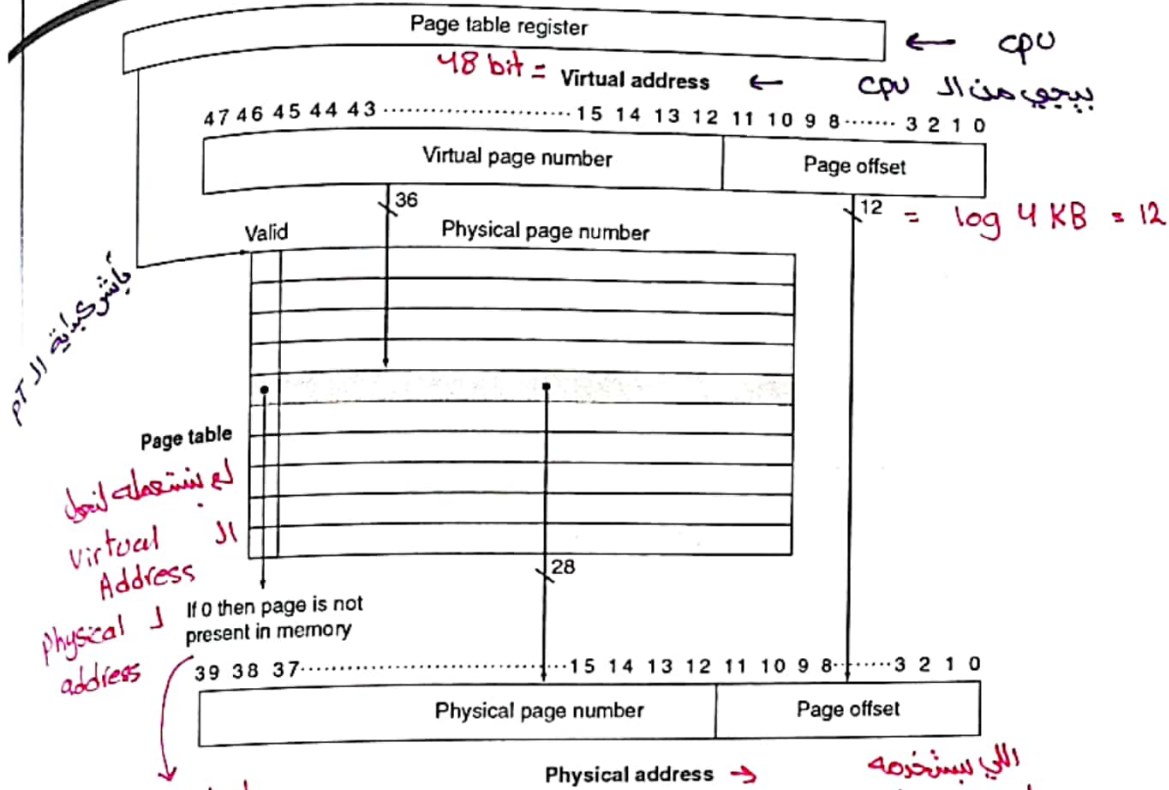 Page table register ← CPU
48 bit = Virtual address ← بيجي من ال CPU
47 46 45 44 43 ........................ 15 14 13 12 11 10 9 8 ....... 3 2 1 0
Virtual page number Page offset
36 12 = log 4 KB = 12
Valid Physical page number
PT ال
Page table
Virtual ال
Address
physical ل
address
28
If 0 then page is not
present in memory
39 38 37 ........................ 15 14 13 12 11 10 9 8 ....... 3 2 1 0
Physical page number Page offset
Physical address → اللي بستخدمه